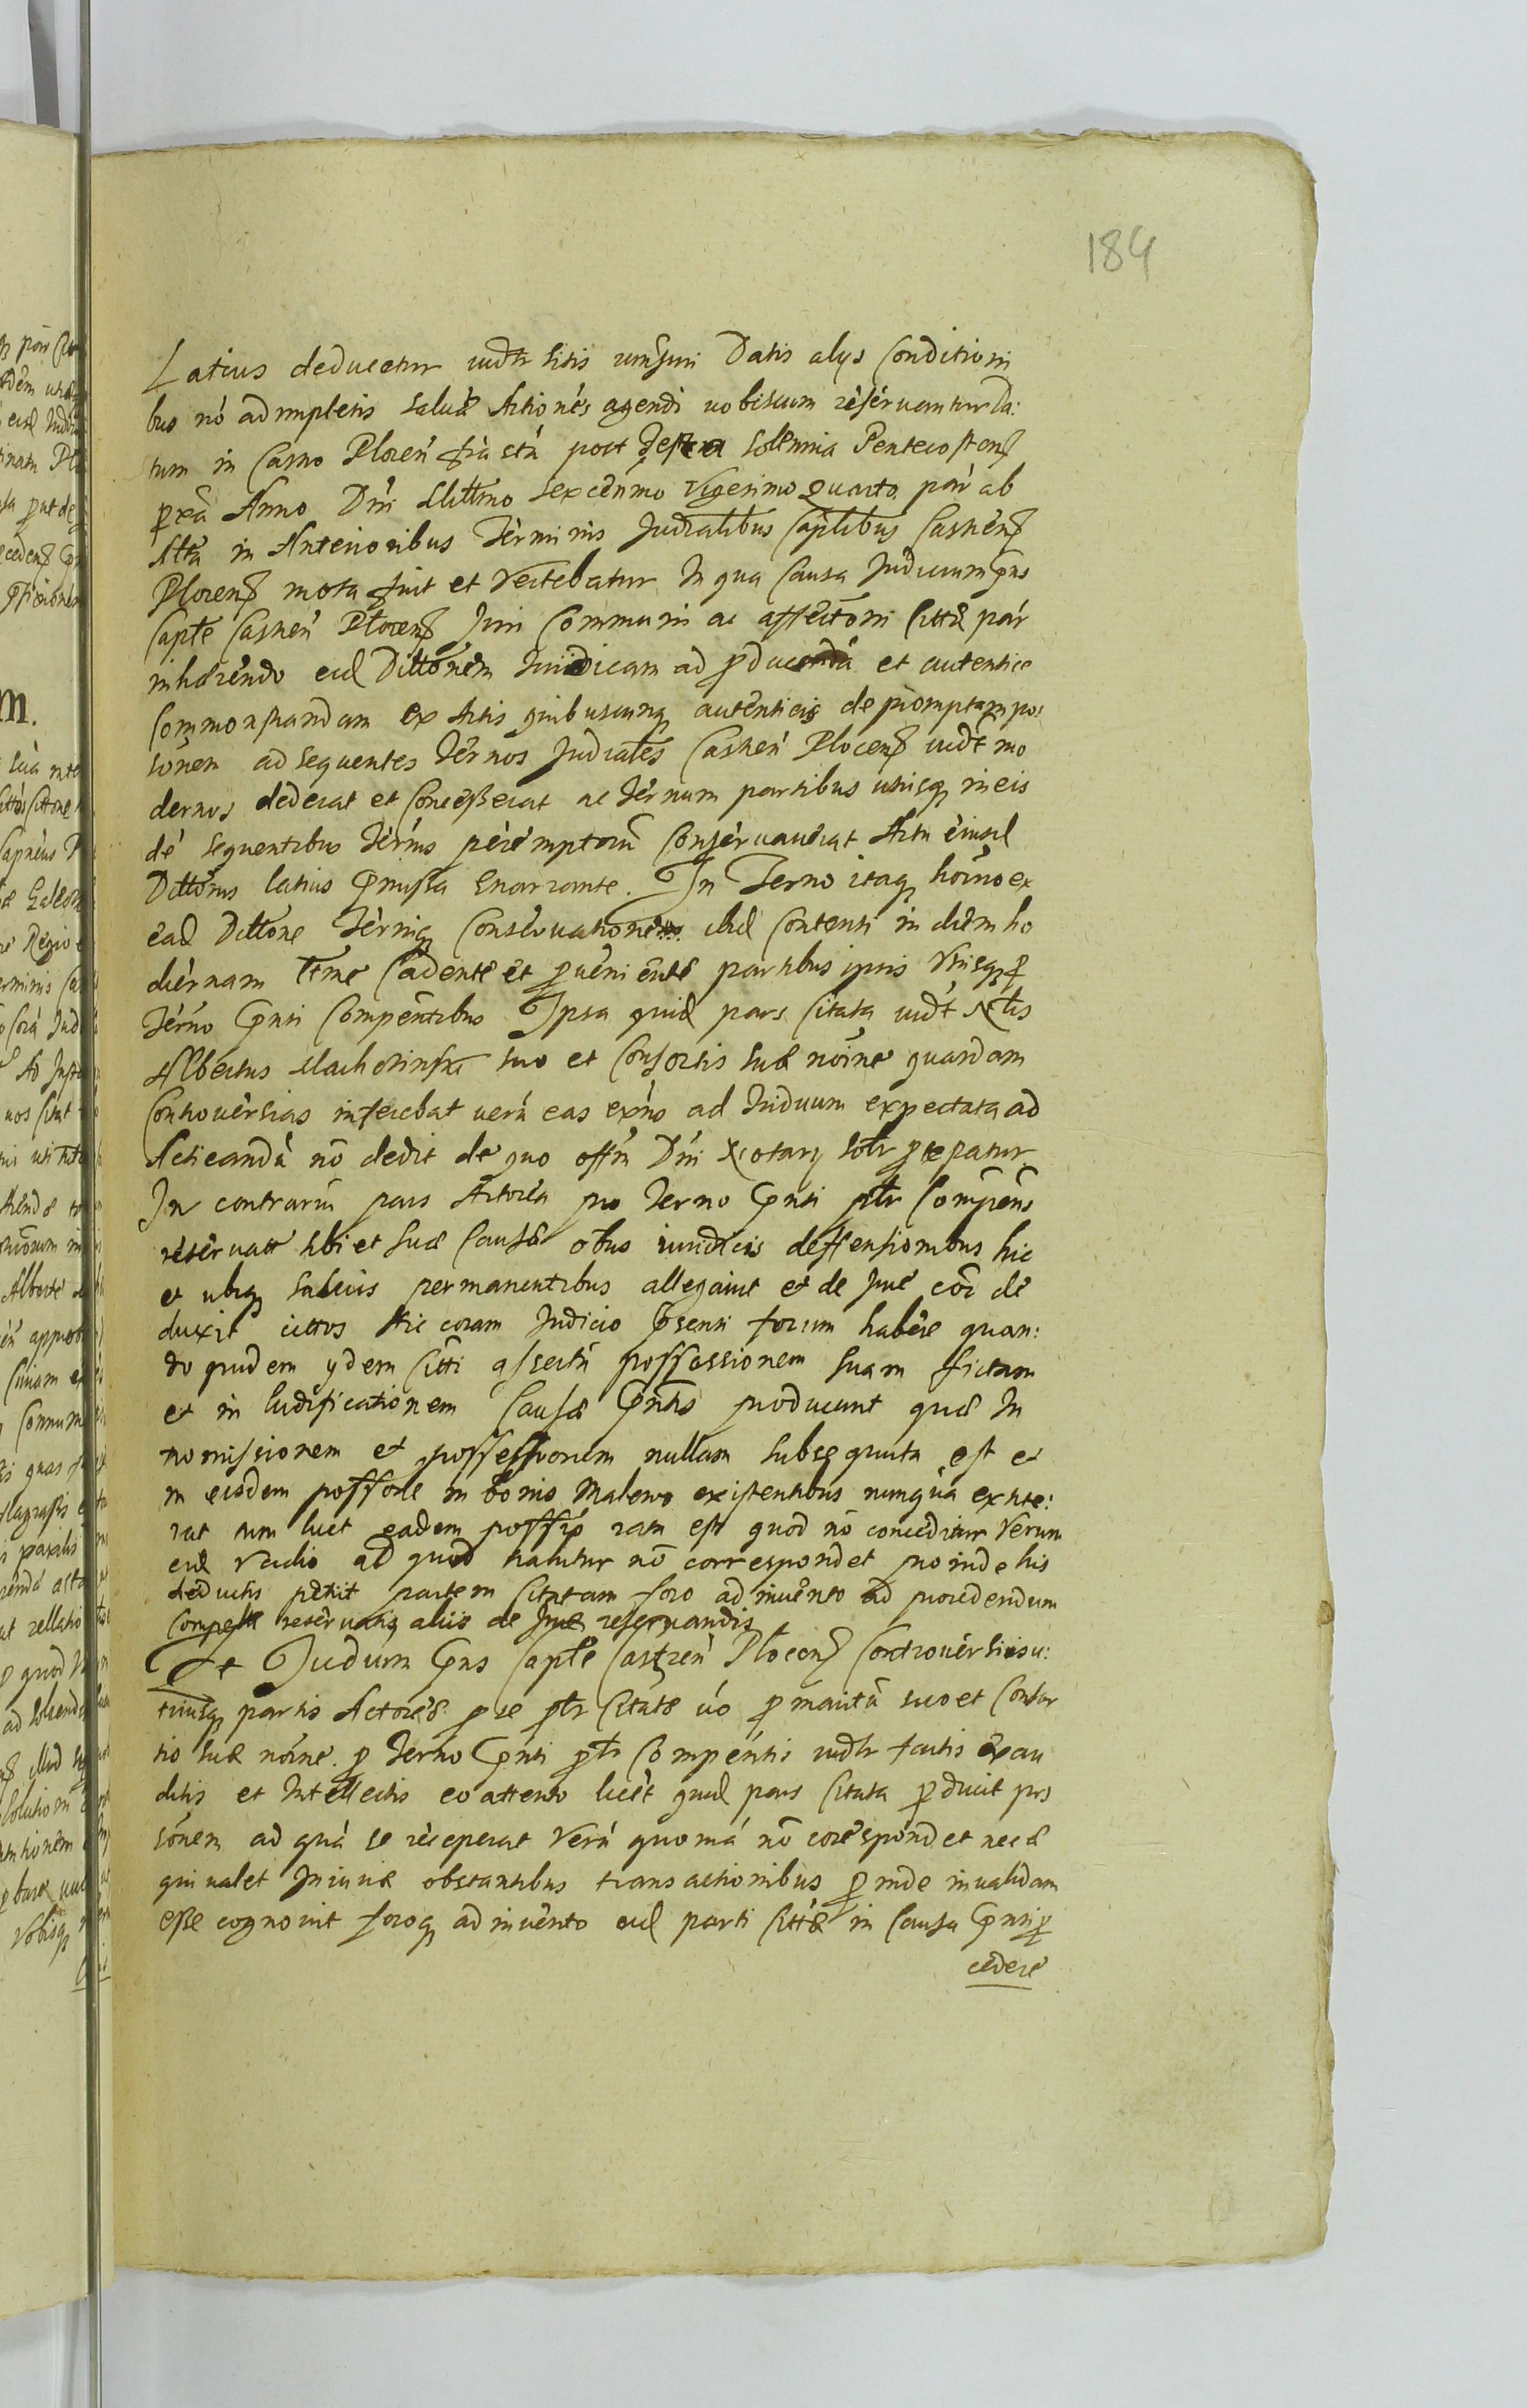 184
Latius deducetur vidtr sitis ursuri Datis alys Conditioni
bus nõ adimpletis salvæ Actiones agendi vobiscum reservantur Da:
tum in Castro Plocen̄ fria 2da post Festa Solemnia Pentecosten̄
pxa Anno Dni Millmo sexcenmo Vigesimo Quarto par ab
Alta in Anterioribus Terminis Judicialibus Capitlibus Castren̄
Plocen̄ mota fuit et Vertebatur In qua Causa Judicium Pns
Capitle Castren̄ Plocen̄ Juri Communi ac affectoni Cittæ par
inhærendo eid Dillonem Juridicam ad pducendã et autentice
Commonstrandam ex Actis quibuscunq autenticis depromptam pos
sonem ad sequentes Ternos Judiciales Castren̄ Plocen̄ vidt mo
dernos dederat et Concesserat ac Ternum partibus utrisq in eis
dẽ sequentibus Ternis peremptoriũ Conservaverat Actu eiusd
Dillonis latius Pmissa Enarrante. In Terno itaq hoino ex
ead Dillone Terniq Conservatione illid Contenti in diem ho
diernam ltme Cadente et pveniente partibus ipsis Vtrisq p
Terno Pnti Comparentibus Ipsa quid pars Citata vidt Nlis
Albertus Machosinski suo et Consortis suæ noine quasdam
Controversias inferebat verũ eas exns ad Triduum expectata ad
Acticandũ nõ dedit de quo offm Dni Notary soltr ptestatur
In contrariũ pars Actorea pro Terno Pnti pltr Compens
reservatt sibi et suæ Causæ obus iuridicis deffensionibus hic
et ubiq salvis permanentibus allegavit et de Jure coi de
duxit cittos hic coram Judicio Psenti forum habere quan:
do quidem ydem Citti assertã possessionem suam fictam
et in ludificationem Causæ Pntis producunt quæ In
tromissionem et possessionem nullam subsequuta est et
in eisdem possone in bonis Malewo existentibus nunquã extite:
rat tum licet eadem possio rata est quod nõ conceditur Verum
eid Vadio ad quod habitur nõ correspondet proinde his
deductis petiit partem Citatam foro adinvento ad procedendum
Compelle reservatis aliis de Jure reservandis
Et Judiciũm Pns Capitle Castren̄ Plocen̄ Controversiis u:
triusq partis Actoreæ p se pltr Citatæ vo p maritũ suo et Consor
tis suæ noine p Terno Pnti pltr Comparentis vidtr factis Exau
ditis et Intellectis eo attento licet quid pars Citata pducit pos
sonem ad quã se receperat Verũ quoniã nõ corespondet nec æ
quivalet Iniuriæ obstantibus transactionibus pinde invalidam
esse cognovit foroq adinvento eid parti Cittæ in Causa Pnti p
cedere